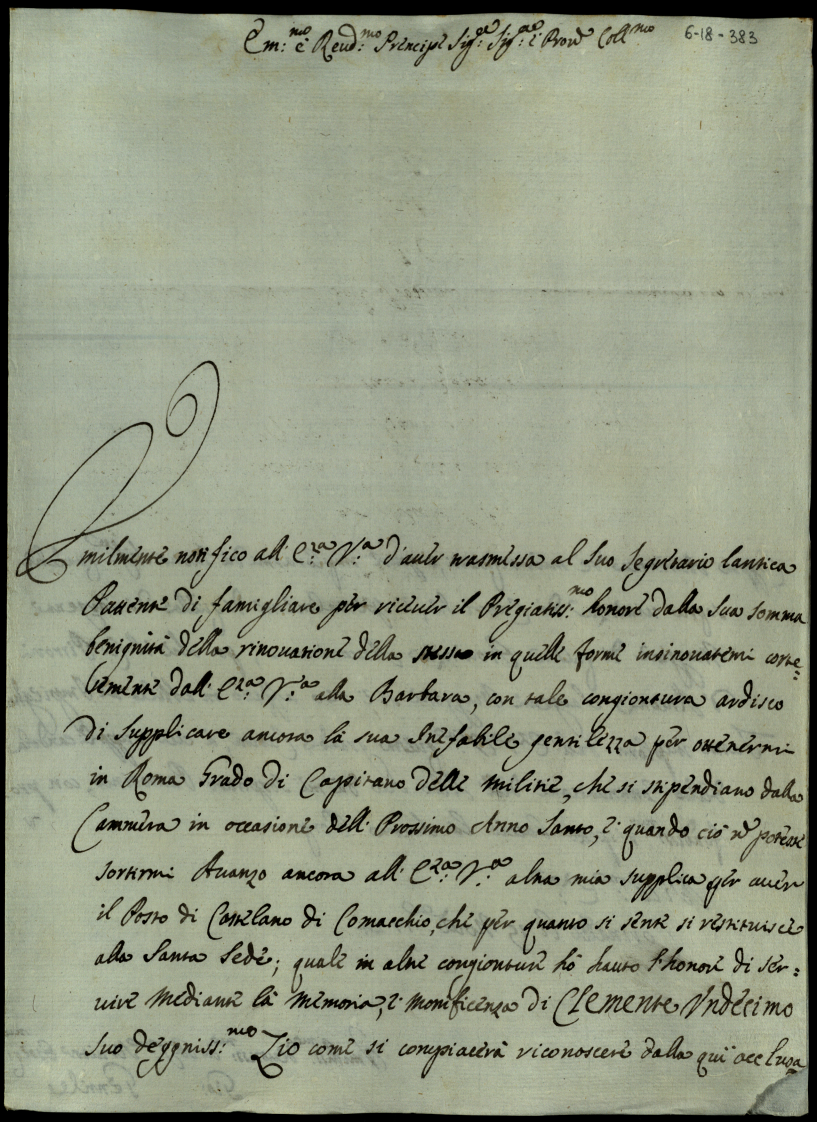 Em:mo e Reud:mo Principe Sig:re Sig:re e Prone Coll:mo
6-18-383
Umilmente notifico all' E:za V:a d'auer trasmessa al suo Segretario lantica
Pattente di famigliare per riceuer il Pregiatiss:mo honore dalla Sua somma
benignità della rinouatione della stessa in quelle forme insinouatemi corte=
semente dall' E:za V:a alla Barbara, con tale congiontura ardisco
di supplicare ancora la sua Inefabile gentilezza per ottenermi
in Roma Grado di Capitano delle Militie, che si stipendiano dalla
Cammera in occasione dell' Prossimo Anno Santo, e quando ciò nō potesse
sortirmi Auanzo ancora all' E:za V:a altra mia supplica per auer
il Posto di Castelano di Comacchio, che per quanto si sente si restituisce
alla Santa Sede; quale in altre congionture hò hauto l'honore di ser=
uire Mediante la Memoria, e Monificenza di Clemente Vndecimo
suo deggniss:mo Zio come si compiacerà riconoscere dalla quì acclusa